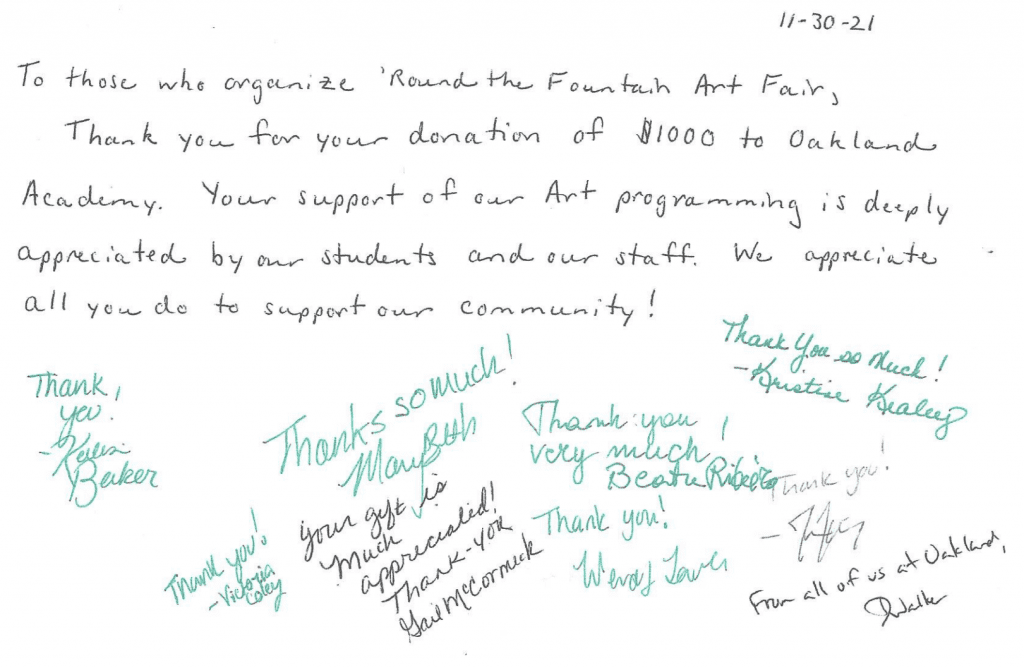 11-30-21
To those who organize 'Round the Fountain Art Fair,
Thank you for your donation of $1000 to Oakland
Academy. Your support of our Art programming is deeply
appreciated by our students and our staff. We appreciate
all you do to support our community!
Thank you so much!
- Kristine Kealey
Thank
you!
-
Baker
Thanks so much!
Mary Beth
Thank you
very much!
Beatriz Ribeiro
Thank you!
-
Your gift is
much
appreciated!
Thank-you
Gail McCormick
Thank you!
Wendy
Thank you!
- Victoria
Coley
From all of us at Oakland,
JWalker